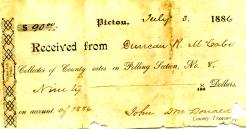 $ 90.00 Pictou, July 3, 1886
Received from Duncan R. McCabe
Collector of County rates in Polling Section, No. 8,
Ninety Dollars
on account of 1886
John McDonald
County Treasurer